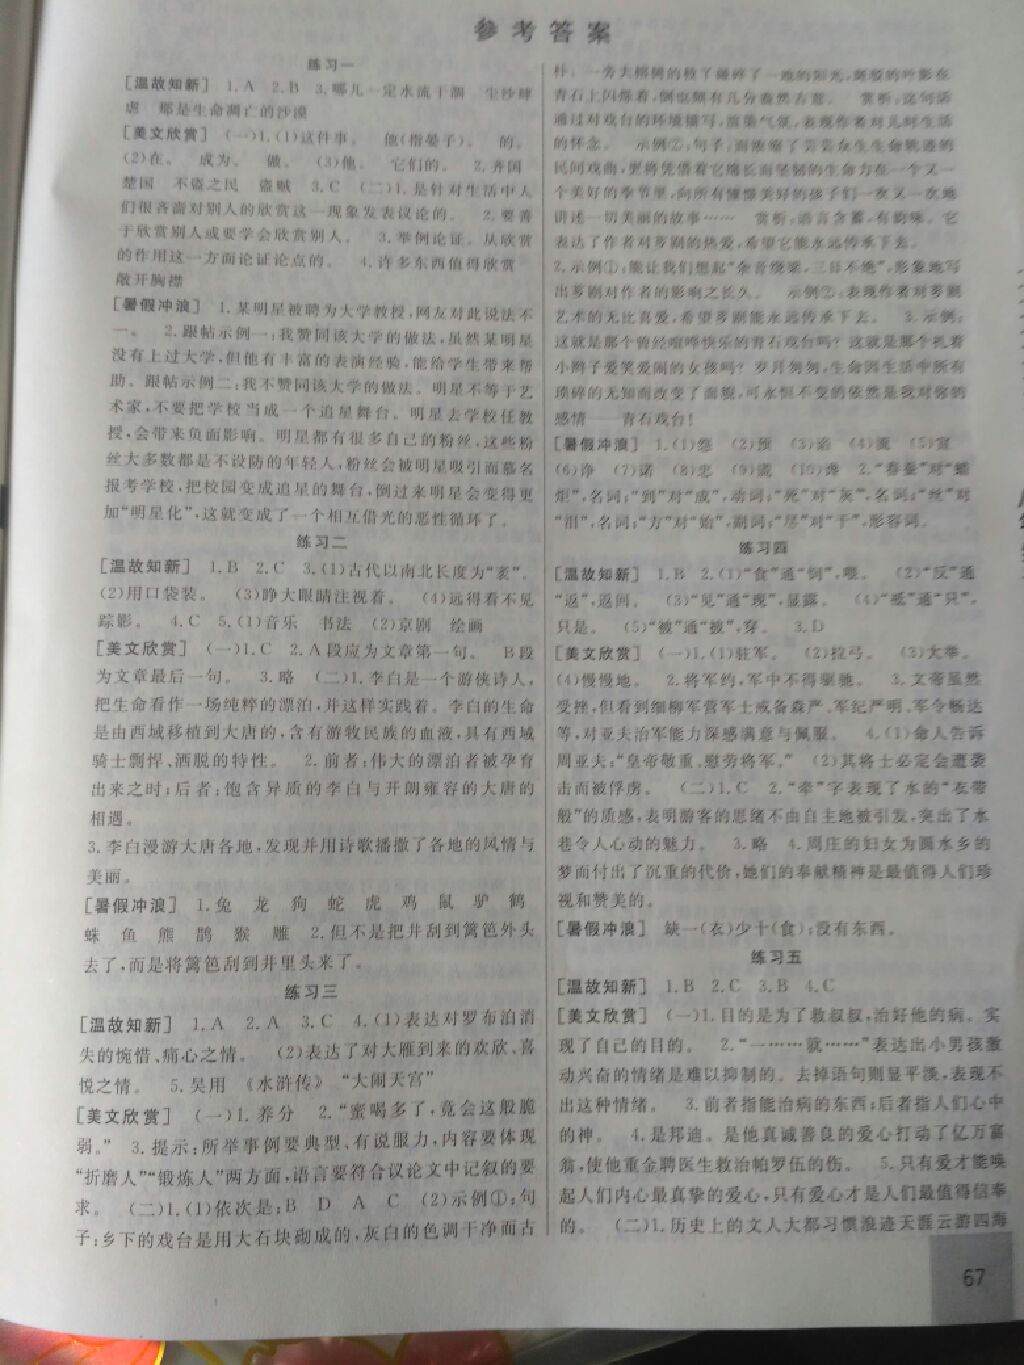 参考答案
练习一
[温故知新] 1.A 2.B 3.哪儿一定水流干涸 尘沙肆
虐 那是生命凋亡的沙漠
[美文欣赏] (一)1.(1)这件事。 他(指晏子)。 的。
(2)在。 成为。 做。 (3)他。 它们的。 2.齐国
楚国 不盗之民 盗贼 3.C (二)1.是针对生活中人
们很吝啬对别人的欣赏这一现象发表议论的。 2.要善
于欣赏别人或要学会欣赏别人。 3.举例论证。从欣赏
的作用这一方面论证论点的。 4.许多东西值得欣赏
敞开胸襟
[暑假冲浪] 1.某明星被聘为大学教授,网友对此说法不
一。 2.跟帖示例一:我赞同该大学的做法,虽然某明星
没有上过大学,但他有丰富的表演经验,能给学生带来帮
助。跟帖示例二:我不赞同该大学的做法。明星不等于艺
术家,不要把学校当成一个追星舞台。明星去学校任教
授,会带来负面影响。明星都有很多自己的粉丝,这些粉
丝大多数都是不设防的年轻人,粉丝会被明星吸引而慕名
报考学校,把校园变成追星的舞台,倒过来明星会变得更
加“明星化”,这就变成了一个相互借光的恶性循环了。
练习二
[温故知新] 1.B 2.C 3.(1)古代以南北长度为“袤”。
(2)用口袋装。 (3)睁大眼睛注视着。 (4)远得看不见
踪影。 4.C 5.(1)音乐 书法 (2)京剧 绘画
[美文欣赏] (一)1.C 2.A段应为文章第一句。 B段
为文章最后一句。 3.略 (二)1.李白是一个游侠诗人,
把生命看作一场纯粹的漂泊,并这样实践着。李白的生命
是由西域移植到大唐的,含有游牧民族的血液,具有西域
骑士剽悍、洒脱的特性。 2.前者:伟大的漂泊者被孕育
出来之时;后者:饱含异质的李白与开朗雍容的大唐的
相遇。
3.李白漫游大唐各地,发现并用诗歌播撒了各地的风情与
美丽。
[暑假冲浪] 1.兔 龙 狗 蛇 虎 鸡 鼠 驴 鹤
蛛 鱼 熊 鹊 猴 雕 2.但不是把井刮到篱笆外头
去了,而是将篱笆刮到井里头来了。
练习三
[温故知新] 1.A 2.A 3.C 4.(1)表达对罗布泊消
失的惋惜、痛心之情。 (2)表达了对大雁到来的欢欣、喜
悦之情。 5.吴用 《水浒传》 “大闹天宫”
[美文欣赏] (一)1.养分 2.“蜜喝多了,竟会这般脆
弱。” 3.提示:所举事例要典型、有说服力,内容要体现
“折磨人”“锻炼人”两方面,语言要符合议论文中记叙的要
求。 (二)1.(1)依次是:B D A C (2)示例①:句
子:乡下的戏台是用大石块砌成的,灰白的色调干净而古
朴。一旁大榕树的枝丫筛碎了一地的阳光,斑驳的叶影在
青石上闪烁着,倒也颇有几分盎然古意。 赏析:这句话
通过对戏台的环境描写,渲染气氛,表现作者对儿时生活
的怀念。 示例②:句子:而浓缩了芸芸众生生命轨迹的
民间戏曲,更将凭借着它绵长而坚韧的生命力在一个又一
个美好的季节里,向所有憧憬美好的孩子们一次又一次地
讲述一切美丽的故事…… 赏析:语言含蓄,有韵味。它
表达了作者对芗剧的热爱,希望它能永远传承下去。
2.示例①:能让我们想起“余音绕梁,三日不绝”,形象地写
出芗剧对作者的影响之长久。 示例②:表现作者对芗剧
艺术的无比喜爱,希望芗剧能永远传承下去。 3.示例:
这就是那个曾经喧哗快乐的青石戏台吗?这就是那个扎着
小辫子爱笑爱闹的女孩吗?岁月匆匆,生命因生活中所有
琐碎的无知而改变了面貌,可永恒不变的依然是我对你的
感情——青石戏台!
[暑假冲浪] 1.(1)怨 (2)预 (3)治 (4)流 (5)宣
(6)净 (7)诺 (8)悲 (9)藏 (10)谗 2.“春蚕”对“蜡
炬”,名词;“到”对“成”,动词;“死”对“灰”,名词;“丝”对
“泪”,名词;“方”对“始”,副词;“尽”对“干”,形容词。
练习四
[温故知新] 1.B 2.(1)“食”通“饲”,喂。 (2)“反”通
“返”,返回。 (3)“见”通“现”,显露。 (4)“祗”通“只”,
只是。 (5)“被”通“披”,穿。 3.D
[美文欣赏] (一)1.(1)驻军。 (2)拉弓。 (3)大举。
(4)慢慢地。 2.将军约,军中不得驱驰。 3.文帝虽然
受挫,但看到细柳军营军士戒备森严、军纪严明、军令畅达
等,对亚夫治军能力深感满意与佩服。 4.(1)命人告诉
周亚夫:“皇帝敬重、慰劳将军。” (2)其将士必定会遭袭
击而被俘虏。 (二)1.C 2.“牵”字表现了水的“衣带
般”的质感,表明游客的思绪不由自主地被引发,突出了水
巷令人心动的魅力。 3.略 4.周庄的妇女为圆水乡的
梦而付出了沉重的代价,她们的奉献精神是最值得人们珍
视和赞美的。
[暑假冲浪] 缺一(衣)少十(食);没有东西。
练习五
[温故知新] 1.B 2.C 3.B 4.C
[美文欣赏] (一)1.目的是为了救叔叔,治好他的病。实
现了自己的目的。 2.“一……就……”表达出小男孩激
动兴奋的情绪是难以抑制的。去掉语句则显平淡,表现不
出这种情绪。 3.前者指能治病的东西;后者指人们心中
的神。 4.是邦迪。是他真诚善良的爱心打动了亿万富
翁,使他重金聘医生救治帕罗伍的伤。 5.只有爱才能唤
起人们内心最真挚的爱心,只有爱心才是人们最值得信奉
的。 (二)1.历史上的文人大都习惯浪迹天涯云游四海
67